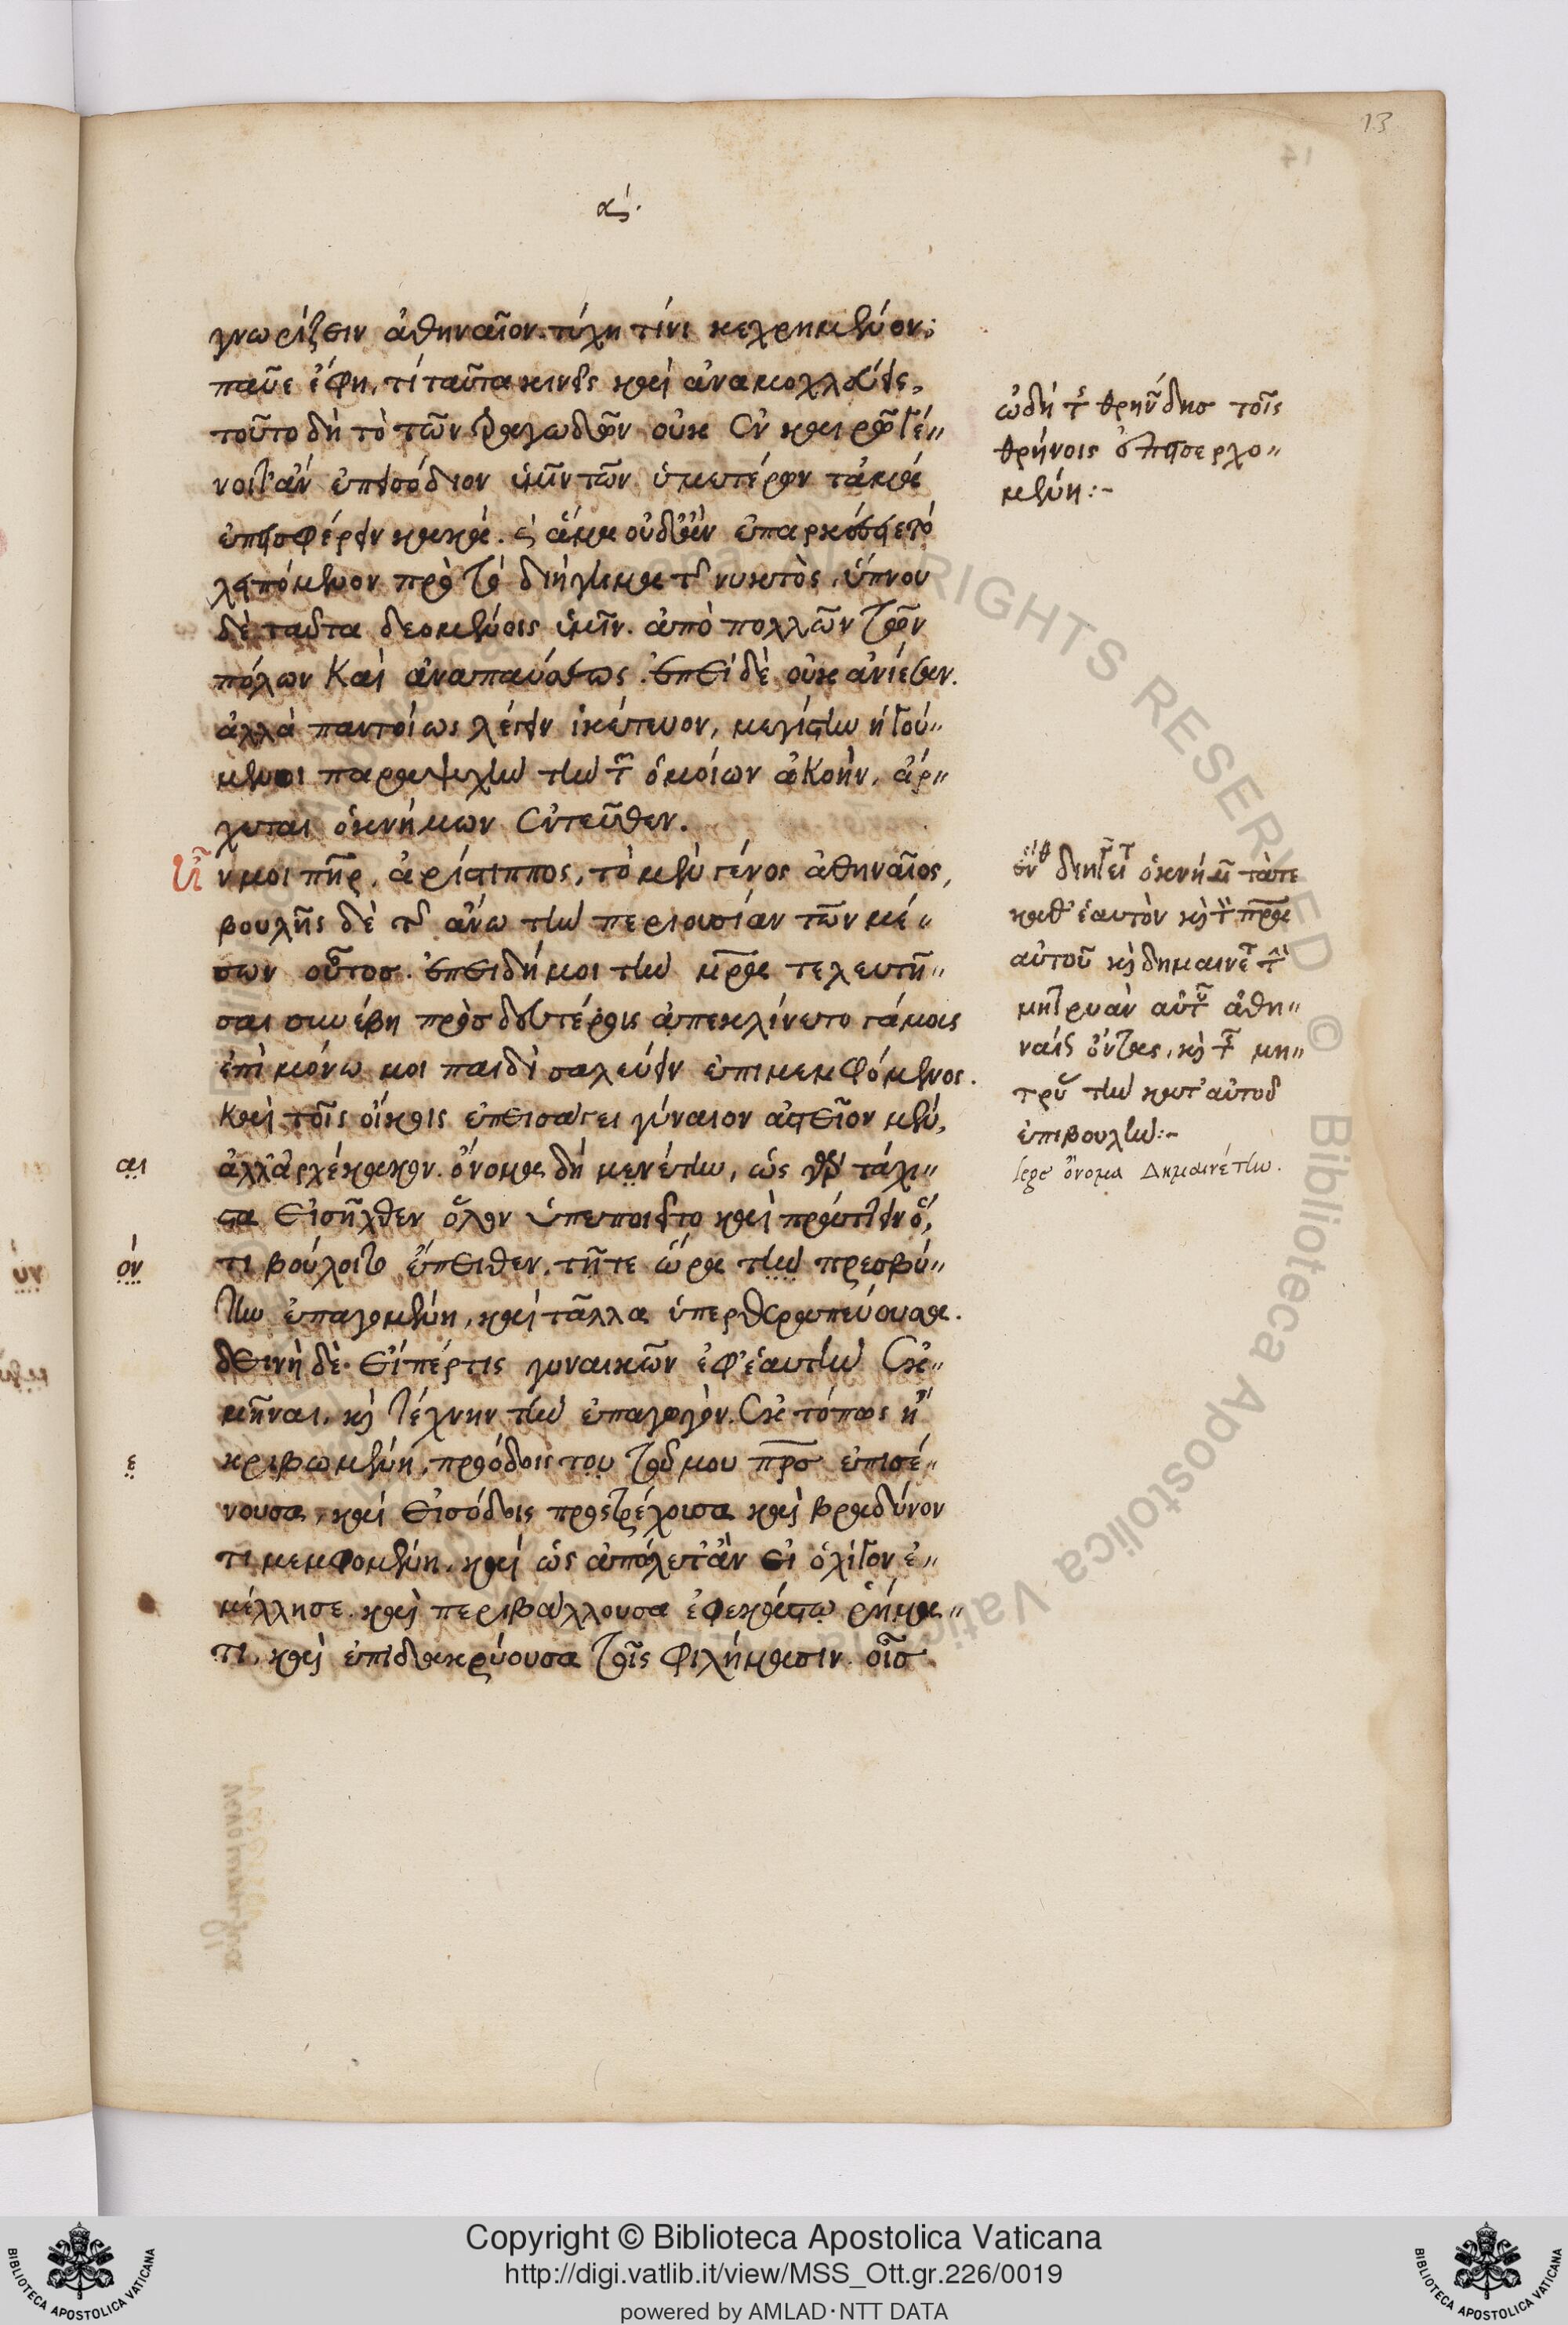 13
14
ας΄.
γνωρίζειν ἀθηναῖον. τύχη τίνι κεχρημένον;
παῦε ἔφη, τί ταῦτα κινεῖς καὶ ἀναμοχλεύεις,
τοῦτο δὴ τὸ τῶν τραγωδῶν οὐκ ἐν καιρῶ γέ〃
νοιτ' ἄν ἐπεισόδιον ὑμῖν τῶν ὑμετέρων τἀμά
ἐπεισφέρειν κακά. ἅμα οὐδ' ἂν ἐπαρκέσειε τὸ
λειπόμενον πρὸς τὸ διήγημα τῆς νυκτὸς, ὕπνου
δὲ ταῦτα δεομένοις ὑμῖν. ἀπὸ πολλῶν τῶν
πόνων καὶ ἀναπαύσεως. ἐπεὶ δὲ οὐκ ἀνίεσαν.
ἀλλὰ παντοίως λέγειν ἱκέτευον, μεγίστην ἡγού〃
μενοι παραψυχὴν τὴν τῶν ὁμοίων ἀκοήν, ἄρ〃
χεται ὁ κνήμων ἐντεῦθεν.
Ἦν μοι πηρ, ἀρίστιππος, τὸ μὲν γένος ἀθηναῖος,
βουλῆς δὲ τῆς ἄνω τὴν περιουσίαν τῶν μέ〃
σων οὗτος. ἐπειδή μοι τὴν μρα τελευτῆ〃
σαι συνέβη πρὸς δευτέροις ἀπεκλίνετο γάμοις
ἐπὶ μόνω μοι παιδὶ σαλεύειν ἐπιμεμφόμενος.
καὶ τοῖς οἴκοις ἐπεισάγει γύναιον ἀστεῖον μέν,
ἀλλ' ἀρχέκακον. ὄνομα δὴ μενέτην, ὡς γὰρ τάχι〃
στα εἰσῆχθεν ὅλον ὑπεποιεῖτο καὶ πράττειν ὅ,
τι βούλοιτο ἔπειθεν. τῆτε ὥρα τὴν πρεσβύ〃
την ἐπαγομένη, καὶ τἄλλα ὑπερθεραπεύουσα.
δεινὴ δὲ εἴπέρ τις γυναικῶν ἐφ' ἑαυτὴν ἐκ〃
μῆναι, καὶ τέχνην τὴν ἐπαγωγὸν. ἐκ τόπως ἠ
κριβωμένη, προόδοις του τοῦ μου πρσ ἐπισέ〃
νουσα, καὶ εἰσόδοις προστρέχουσα καὶ βραδύνον
τι μεμφομένη, καὶ ὡς ἀπόλετ' ἂν εἰ ὀλίγον ἐ〃
μέλλησε. καὶ περιβάλλουσα ἐφεκάστω ῥήμα〃
τι, καὶ ἐπιδακρύουσα τοῖς φιλήμασιν. οἷσ
αι
όν
ε
ὠδή τῆς θρηνώδης τοῖς
θρήνοις ἐπεισερχο〃
μένη:-
διηγεῖται ὁ κνήμων τὰ τε
καθ' ἑαυτὸν καὶ τὸν πρα
αὐτοῦ καὶ δημαινέτην
μητρυιὰν αὐτοῦ ἀθη〃
ναίς ὄντας, καὶ τῆς μη〃
τρυιᾶς τὴν κατ' αὐτοῦ
ἐπιβουλήν:-
lege ὄνομα Δημαινέτην.
Copyright © Biblioteca Apostolica Vaticana
http://digi.vatlib.it/view/MSS_Ott.gr.226/0019
powered by AMLAD·NTT DATA
BIBLIOTECA APOSTOLICA VATICANA
BIBLIOTECA APOSTOLICA VATICANA